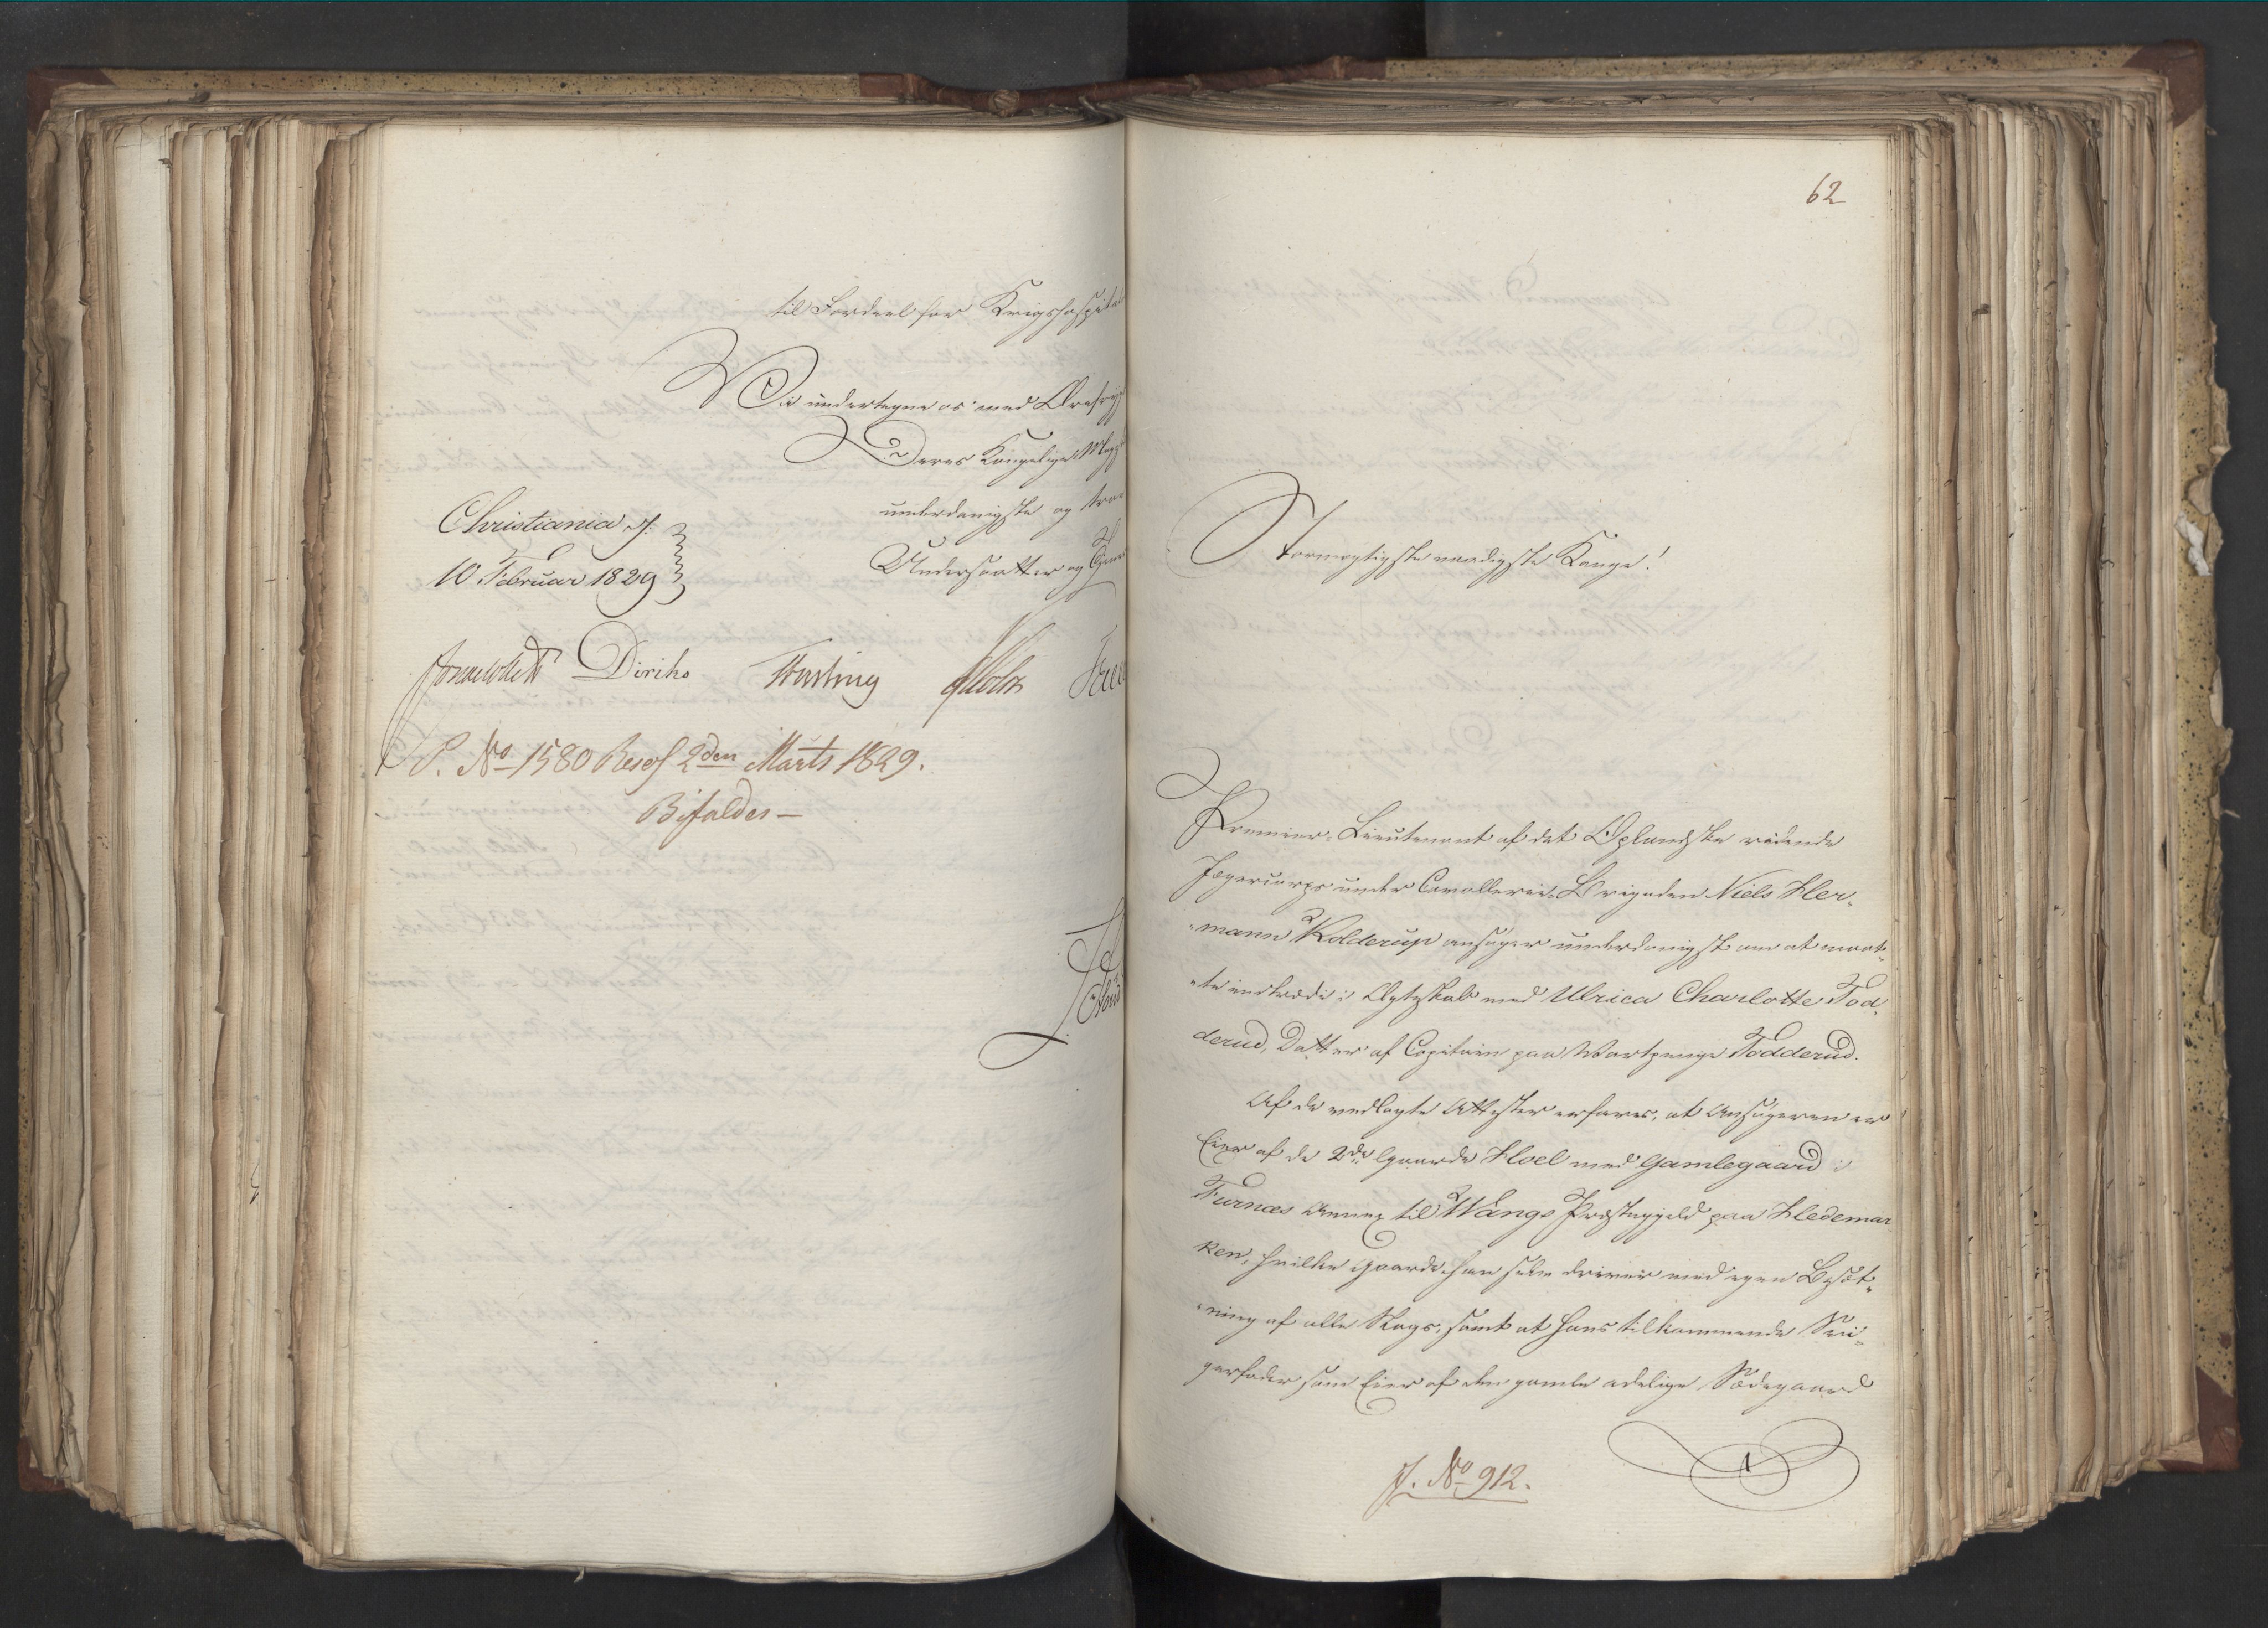 til Fordeel for Krigshospita
Vi undertegne os med Ærefrygt
Deres Kongelige Maje
underdanigste og tro
Undersaatter og
Christiania d:
10 Februar 1829
Diriks
Holst
S. No 1580 Resol 2den Marts 1829.
Bifaldes —
62
Stormægtigste naadigste Konge!
Premier-Lieutenant af det Oplandske ridende
Jægercorps under Cavallerie-Brigaden Niels Her-
mann Kolderup ansøger underdanigst om at maat-
te indtræde i Ægteskab med Ulrica Charlotte Tod-
derud, Datter af Capitain paa Vartpenge Todderud.
Af de vedlagte Attester erfares, at Ansøgeren er
Eier af de 2de Gaarde Hoel med Gamlegaard i
Furnæs Annex til Wangs Præstegjeld paa Hedemar
ken, hvilke Gaarde han selv driver med egen Besæt-
ning af alle Slags, samt at hans tilkommende Svi-
gerfader som Eier af den gamle adelige Sædegaard
J. No 912.
1